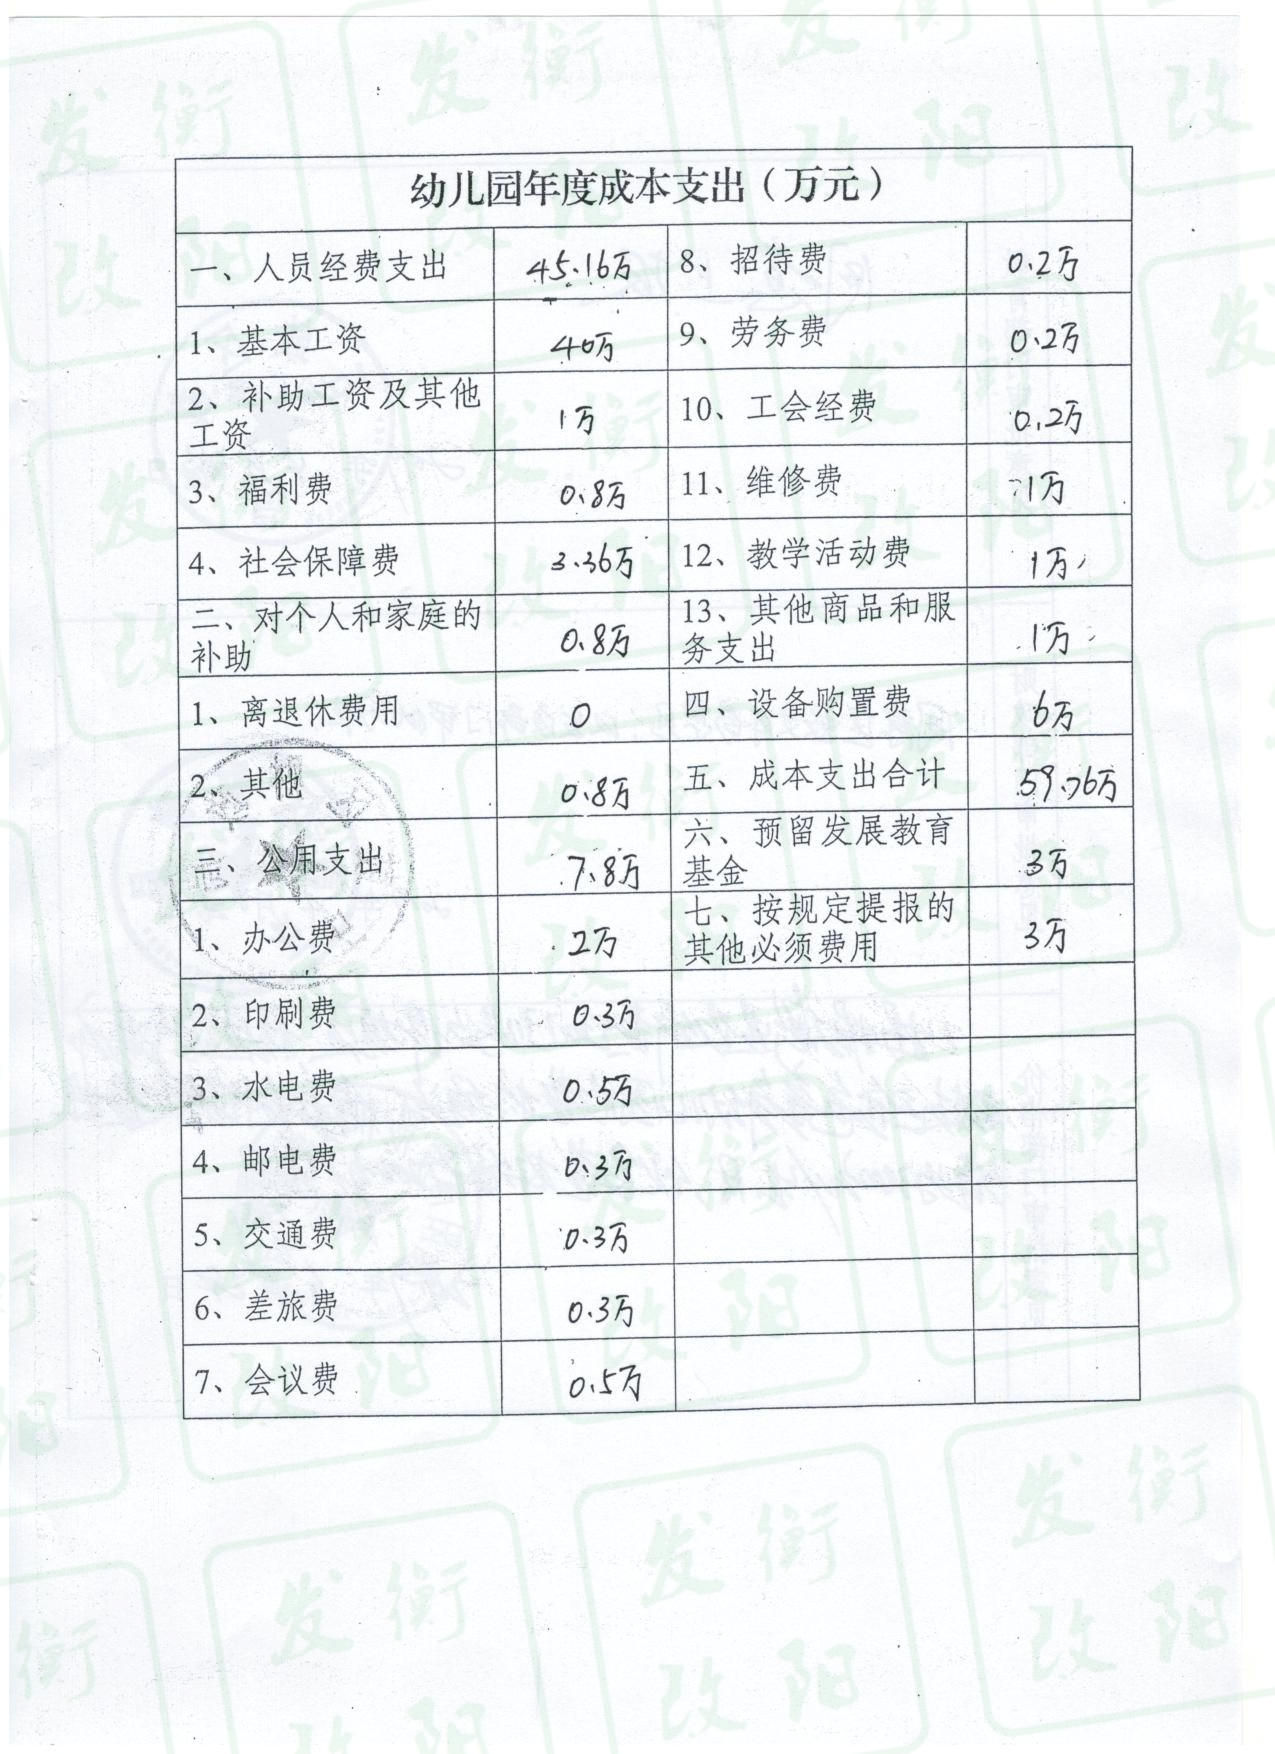 幼儿园年度成本支出（万元）
一、人员经费支出 45.16万 8、招待费 0.2万
1、基本工资 40万 9、劳务费 0.2万
2、补助工资及其他
工资 1万 10、工会经费 0.2万
3、福利费 0.8万 11、维修费 1万
4、社会保障费 3.36万 12、教学活动费 1万
二、对个人和家庭的
补助 0.8万 13、其他商品和服
务支出 1万
1、离退休费用 0 四、设备购置费 6万
2、其他 0.8万 五、成本支出合计 59.76万
三、公用支出 7.8万 六、预留发展教育
基金 3万
1、办公费 2万 七、按规定提报的
其他必须费用 3万
2、印刷费 0.3万
3、水电费 0.5万
4、邮电费 0.3万
5、交通费 0.3万
6、差旅费 0.3万
7、会议费 0.5万
发 衡
改 阳